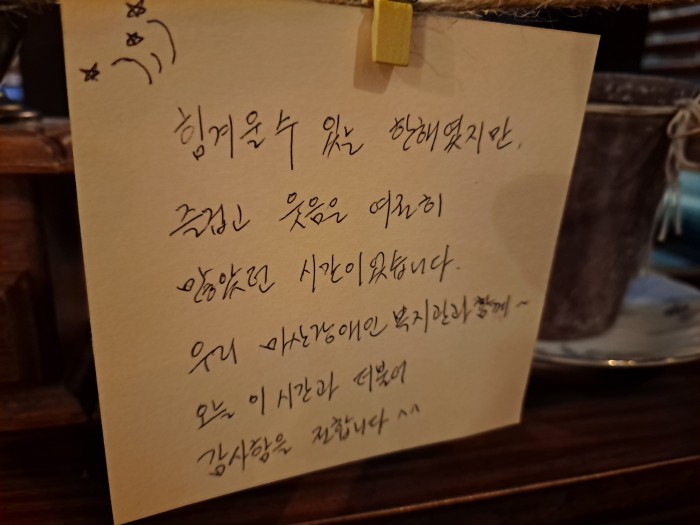 힘겨울수 있는 한해였지만,
즐겁고 웃음은 여전히
많았던 시간이었습니다.
우리 마산장애인복지관과 함께~
오늘 이 시간과 더불어
감사함을 전합니다 ^^